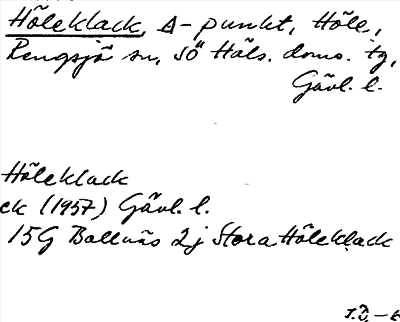 Höleklack, Δ-punkt, Höle,
Rengsjö sn, SÖ Häls. doms. tg,
Gävl. l.
Höleklack
ek (1957) Gävl. l.
15G Bollnäs 2j Stora Höleklack